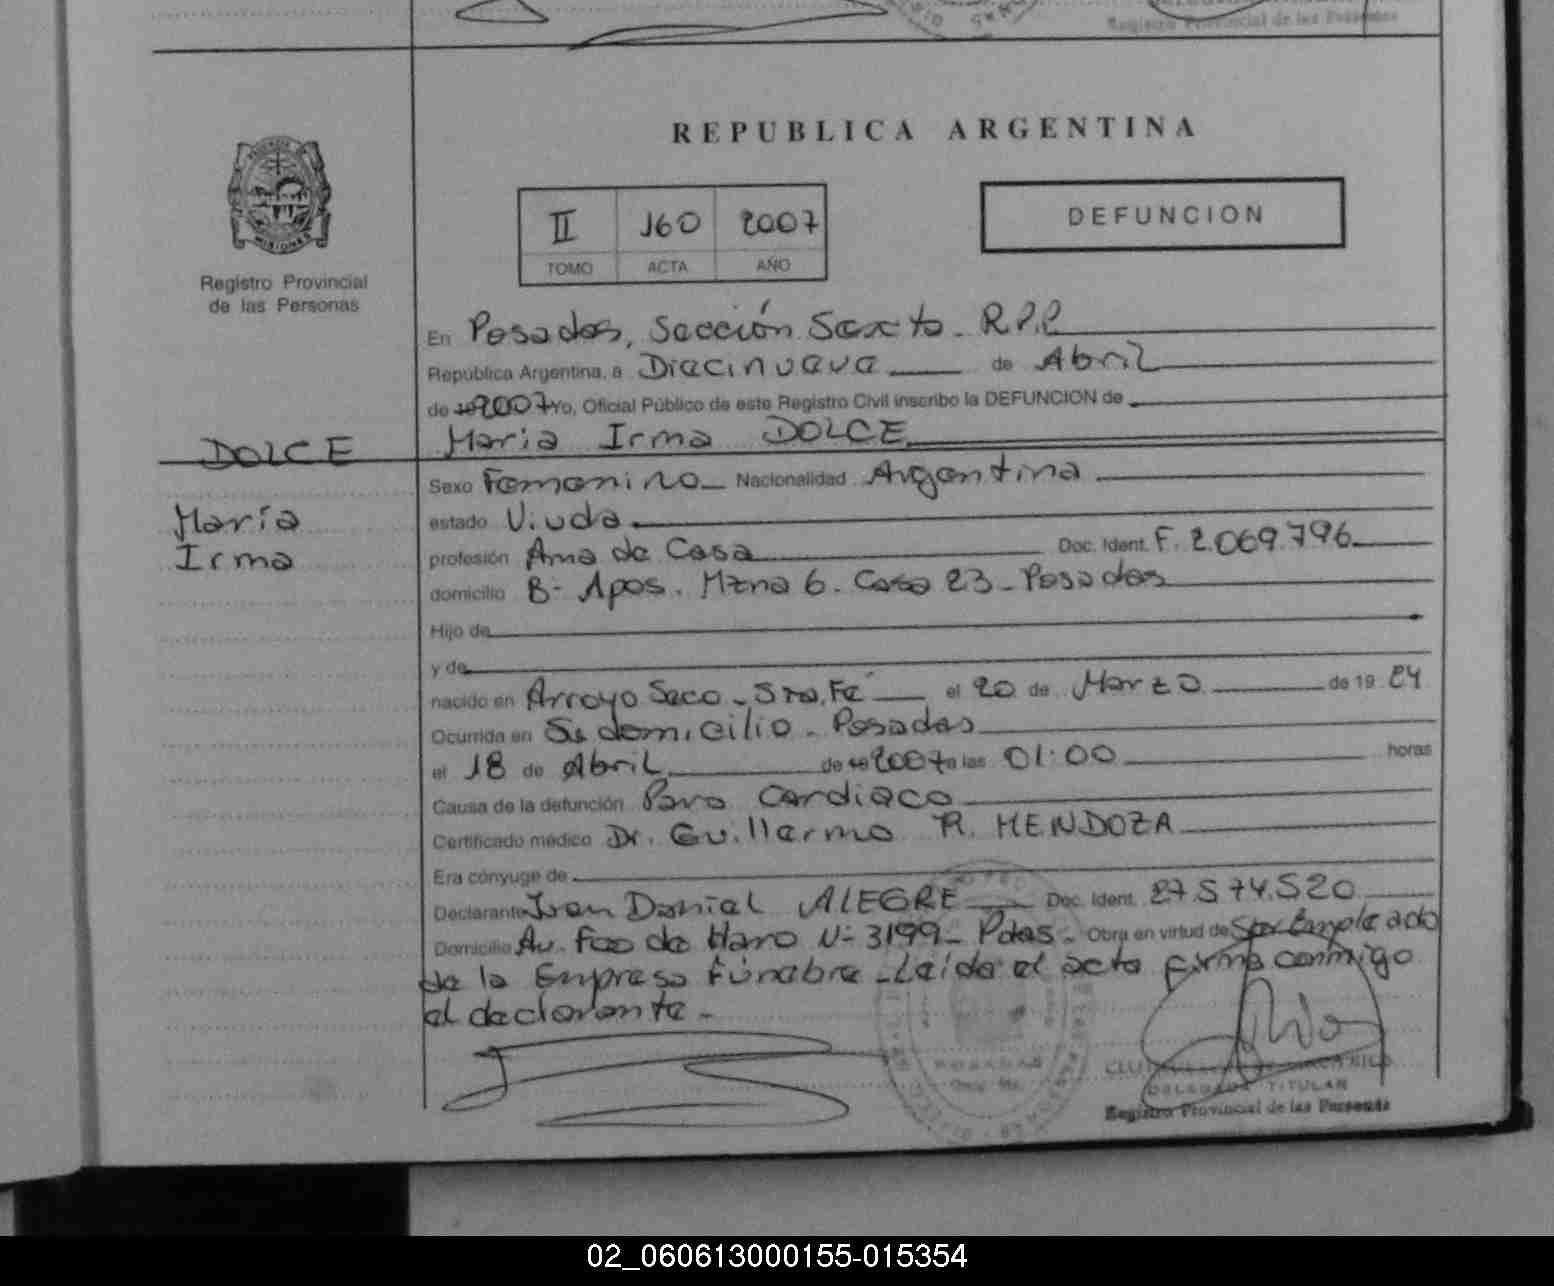 Registro Provincial de las Personas
REPUBLICA ARGENTINA
MISIONES
Registro Provincial
de las Personas
II 160 2007
TOMO ACTA AÑO
DEFUNCION
En Posadas, Sección Sexta. R.P.P
República Argentina, a Diecinueve de Abril
de 19 2007 Yo, Oficial Público de este Registro Civil inscribo la DEFUNCION de
DOLCE
María Irma DOLCE
María
Irma
Sexo Femenino Nacionalidad Argentina
estado Viuda
profesión Ama de Casa Doc. Ident. F. 2.069.796
domicilio B- Apos. Mzna 6. Casa 23 - Posadas
Hijo de
y de
nacido en Arroyo Seco - Sta. Fé el 20 de Marzo de 19 24
Ocurrida en Su domicilio - Posadas
el 18 de Abril de 19 2007 a las 01:00 horas
Causa de la defunción Paro Cardiaco
Certificado médico Dr. Guillermo R. MENDOZA
Era cónyuge de
Declarante Ivan Daniel ALEGRE Doc. Ident. 27.574.520
Domicilio Av. Fco de Haro N- 3199 - Pdas. Obra en virtud de Ser Empleado
de la Empresa Fúnebre - Leída el acta firma conmigo
el declarante.-
DELEGADA TITULAR
Registro Provincial de las Personas
02_060613000155-015354